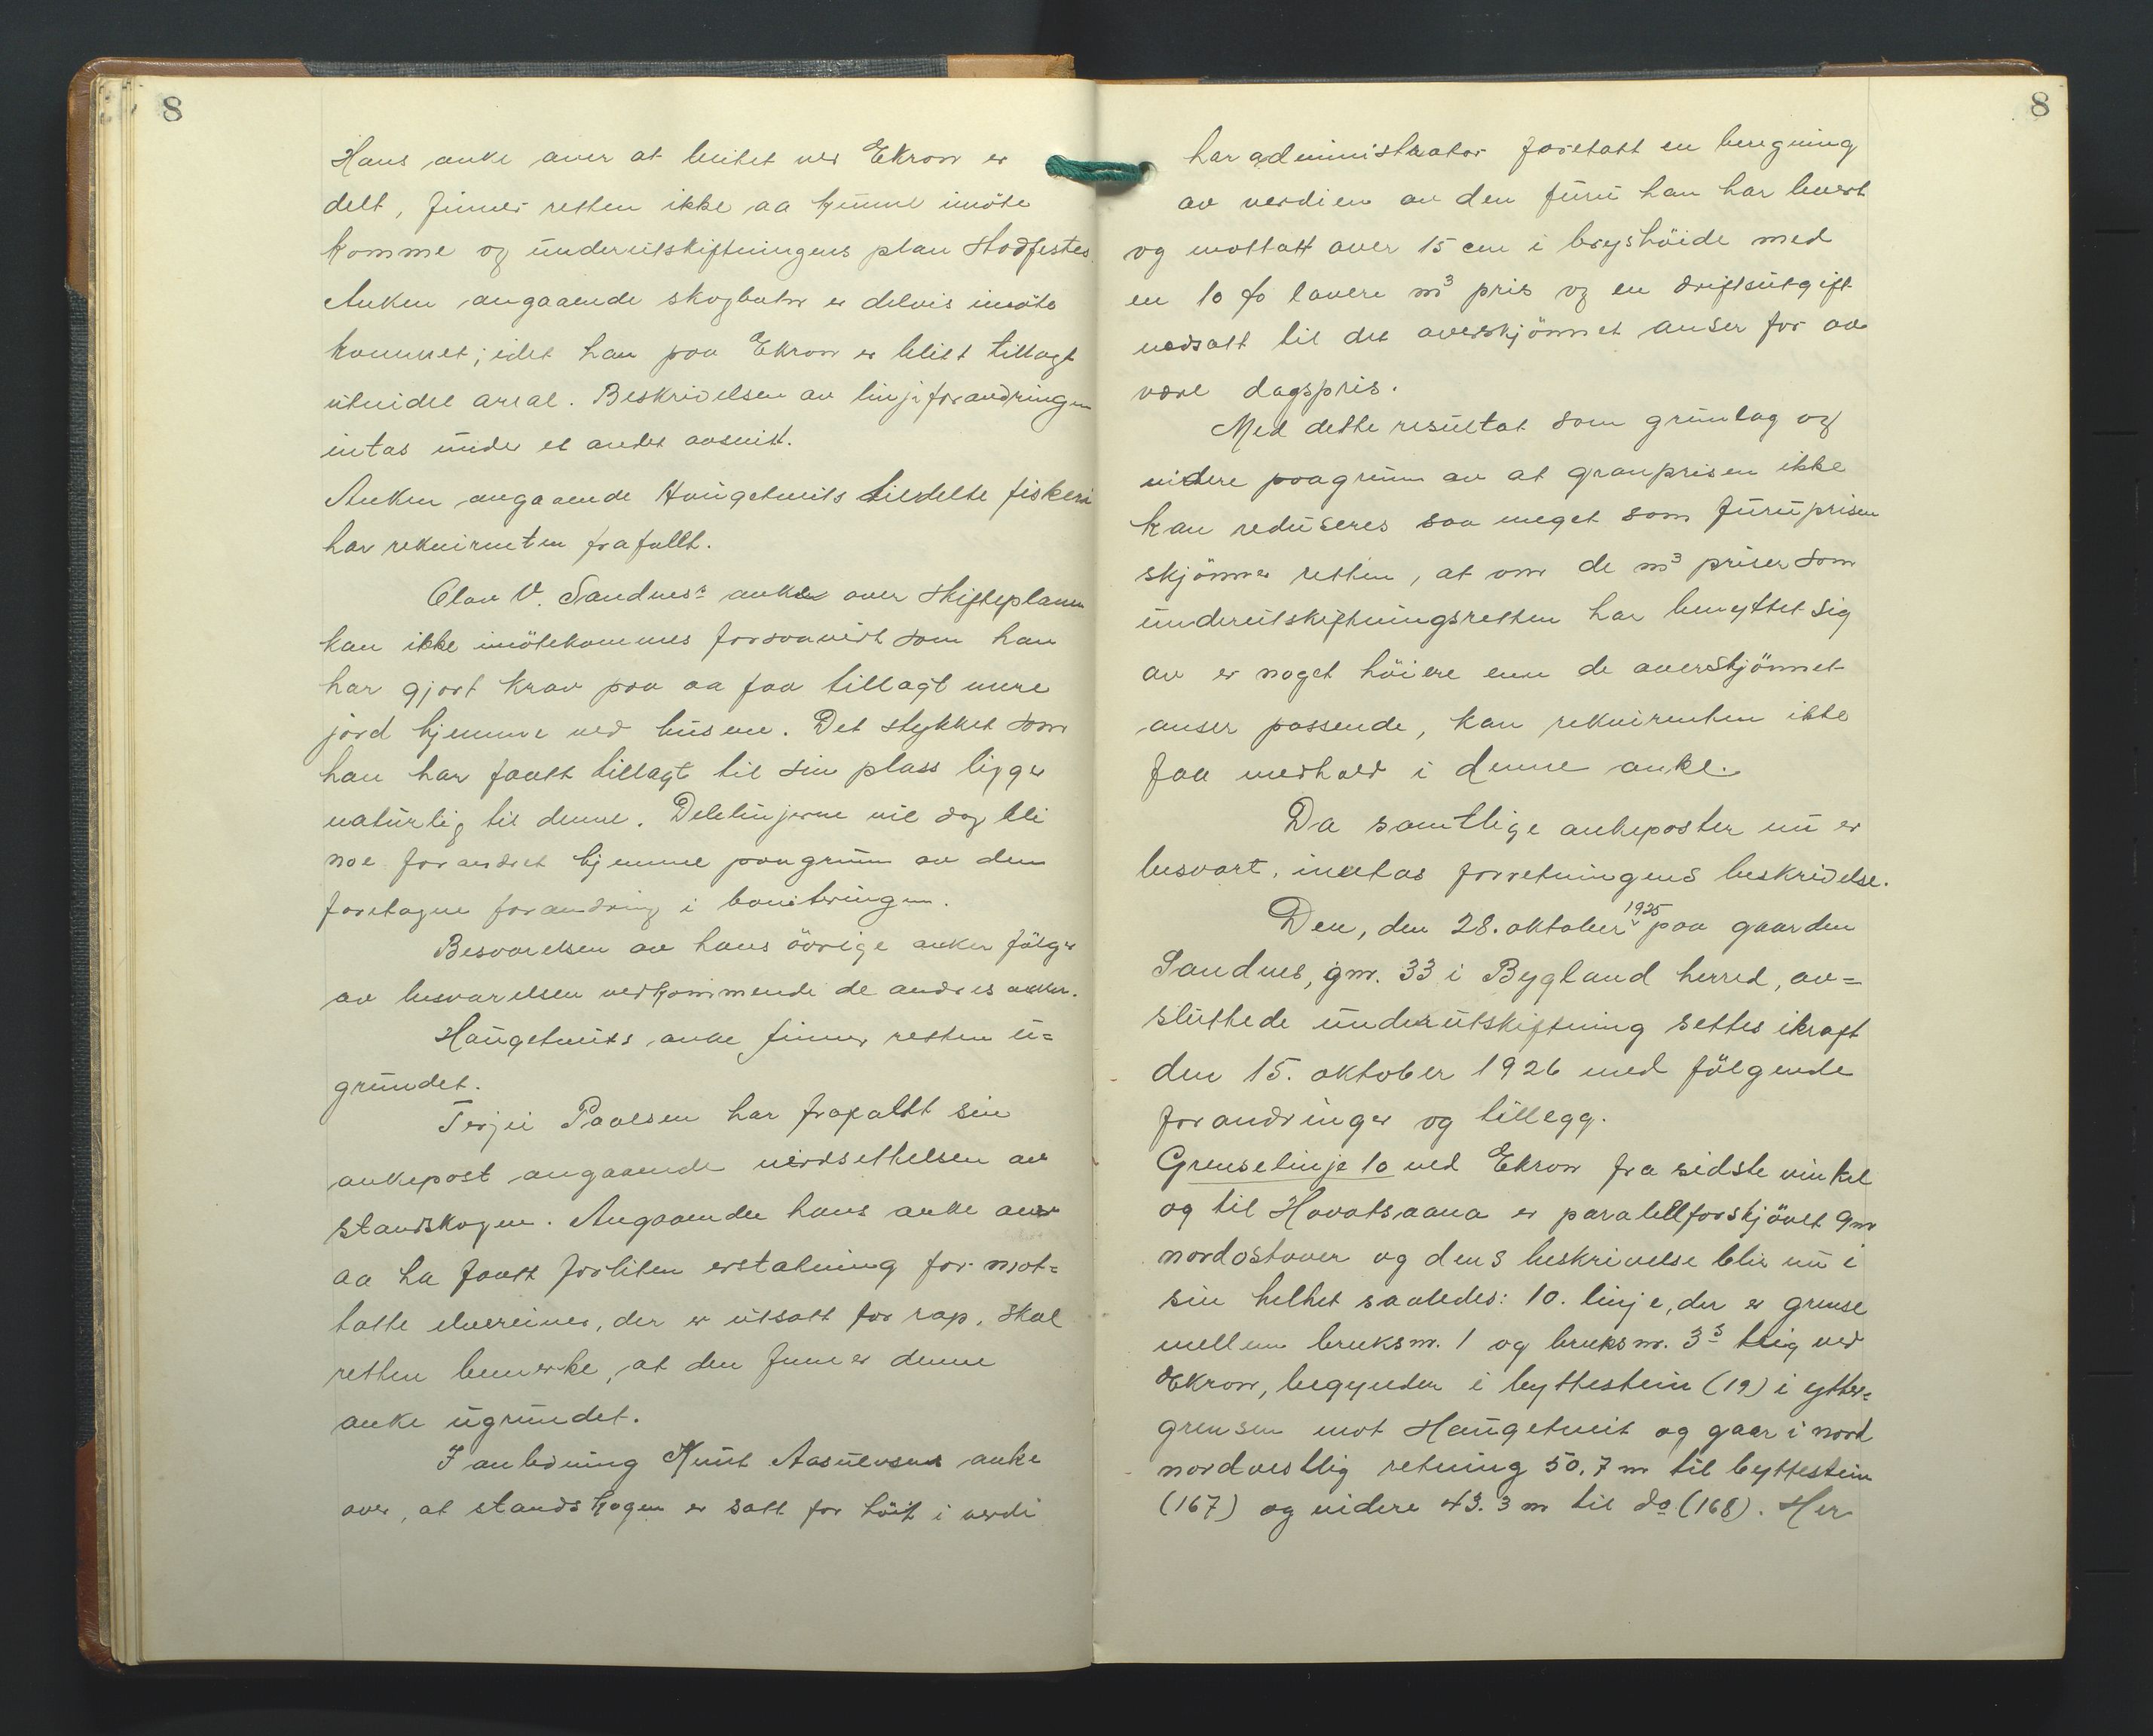 8
Hans anke aver at beitet ved Ekron er
delt, finner retten ikke aa kunne imöte
komme og underutskiftningens plan stadfestes.
Anken angaaende skogbotn er delvis imöte
kommet; idet han paa Ekron er blitt tillagt
utvidet areal. Beskrivelsen av linjeforandringen
intas under et andet avsnitt.
Anken angaaende Haugetveits tildelte fiskeri
har rekvirenten frafallt.
Olav V. Sandnes: anke over skifteplanen
kan ikke imötekommes forsaavidt som han
har gjort krav paa aa faa tillagt mere
jord hjemme ved husene. Det stykket som
han har faatt tillagt til sin plass ligger
naturlig til denne. Delelinjerne vil dog bli
noe forandret hjemme paagrunn av den
foretagne forandring i boniteringen.
Besvarelsen av hans övrige anker fölger
av besvarelsen vedkommende de andres anker.
Haugetveits anke finner retten u=
grundet.
Terjei Paalsen har frafallt sin
ankepost angaaende verdsettelsen av
standskogen. Angaaende hans anke over
aa ha faatt forliten erstatning for mot=
tatte elvereiner, der er utsatt for rap, skal
retten bemerke, at den finner denne
anke ugrundet.
I anledning Knut Aasulvsens anke
over, at standskogen er satt for höit i verdi
8
har administrator foretatt en beregning
av verdien av den furu han har levert
og mottatt over 15 cm i brysthöide med
en 10 % lavere m³ pris og en driftsutgift
nedsatt til det overskjönnet anser for aa
være dagspris.
Med dette resultat som grunlag og
videre paagrunn av at granprisen ikke
kan reduseres saa meget som furuprisen
skjönner retten, at om de m³ priser som
underutskiftningsretten har benyttet sig
av er noget höiere enn de overskjönnet
anser passende, kan rekvirenten ikke
faa medhald i denne anke.
Da samtlige ankeposter nu er
besvart, inntas forretningens beskrivelse.
Den, den 28. oktober 1925 paa gaarden
Sandnes, gnr. 33 i Bygland herred, av=
sluttede underutskiftning settes ikraft
den 15. oktober 1926 med fölgende
forandringer og tillegg.
Grenselinje 10 ved Ekron fra sidste vinkel
og til Havatsaana er paralellforskjövet 9 m
nordostover og dens beskrivelse blir nu i
sin helhet saaledes: 10. linje, der er grense
mellem bruksnr. 1 og bruksnr. 3³ teig ved
Ekron, begynder i byttestein (19) i ytter=
grensen mot Haugetveit og gaar i nord
nordvestlig retning 50.7 m til byttestein
(167) og videre 43.3 m til do (168). Her